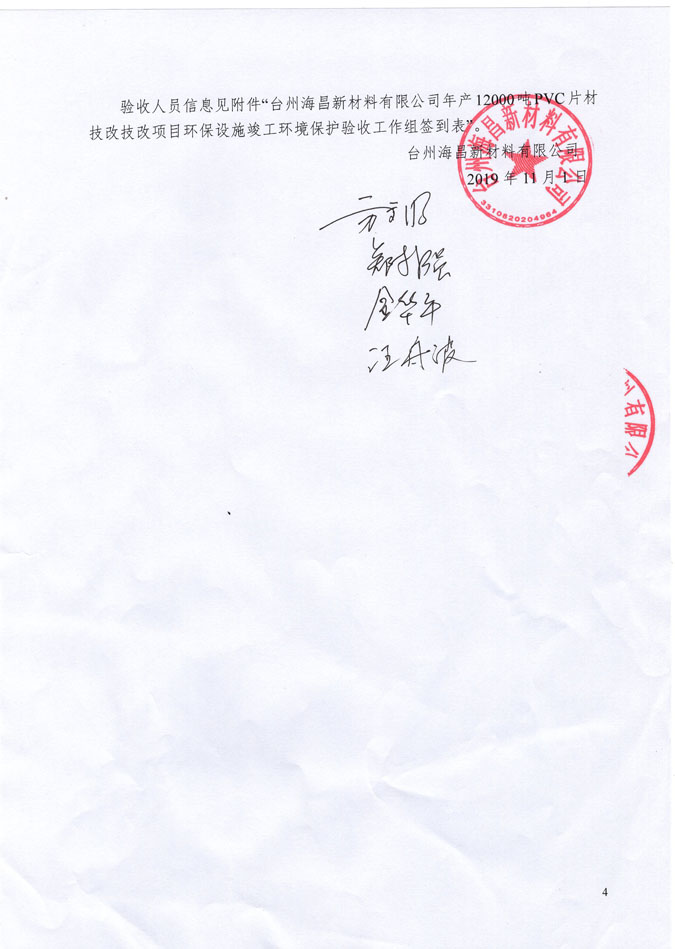 验收人员信息见附件“台州海昌新材料有限公司年产12000吨PVC片材
技改技改项目环保设施竣工环境保护验收工作组签到表”。
台州海昌新材料有限公司
2019 年 11 月 1 日
台州海昌新材料有限公司
3310820204964
金华平
汪丹波
有限公
4